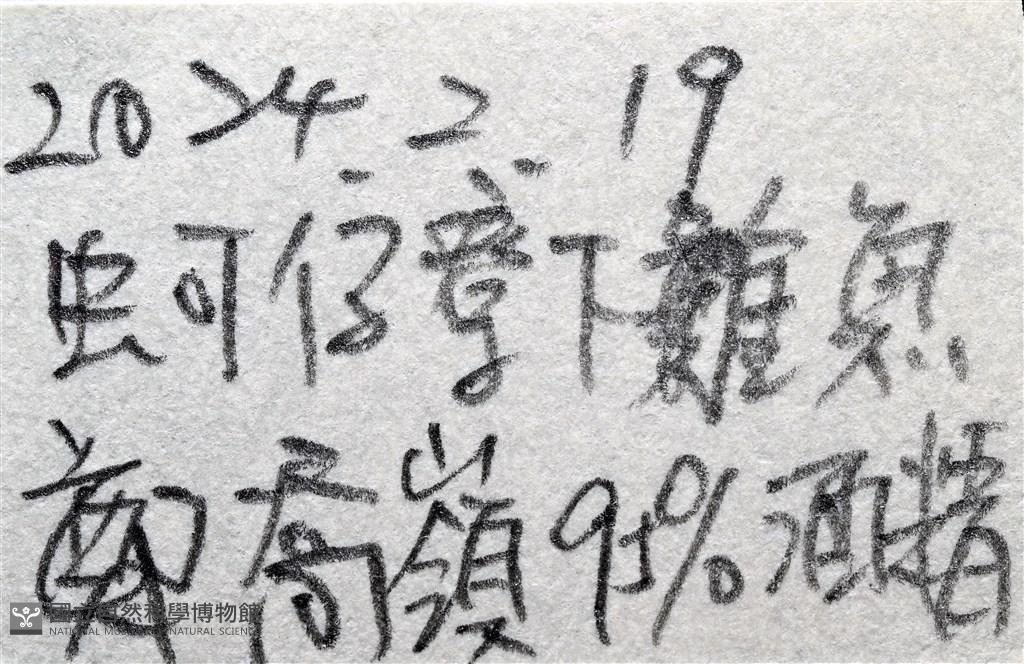 2024 2 19
蚵仔寮下雜魚
蕭喬嶺 95% 酒精
國立自然科學博物館
NATIONAL MUSEUM OF NATURAL SCIENCE